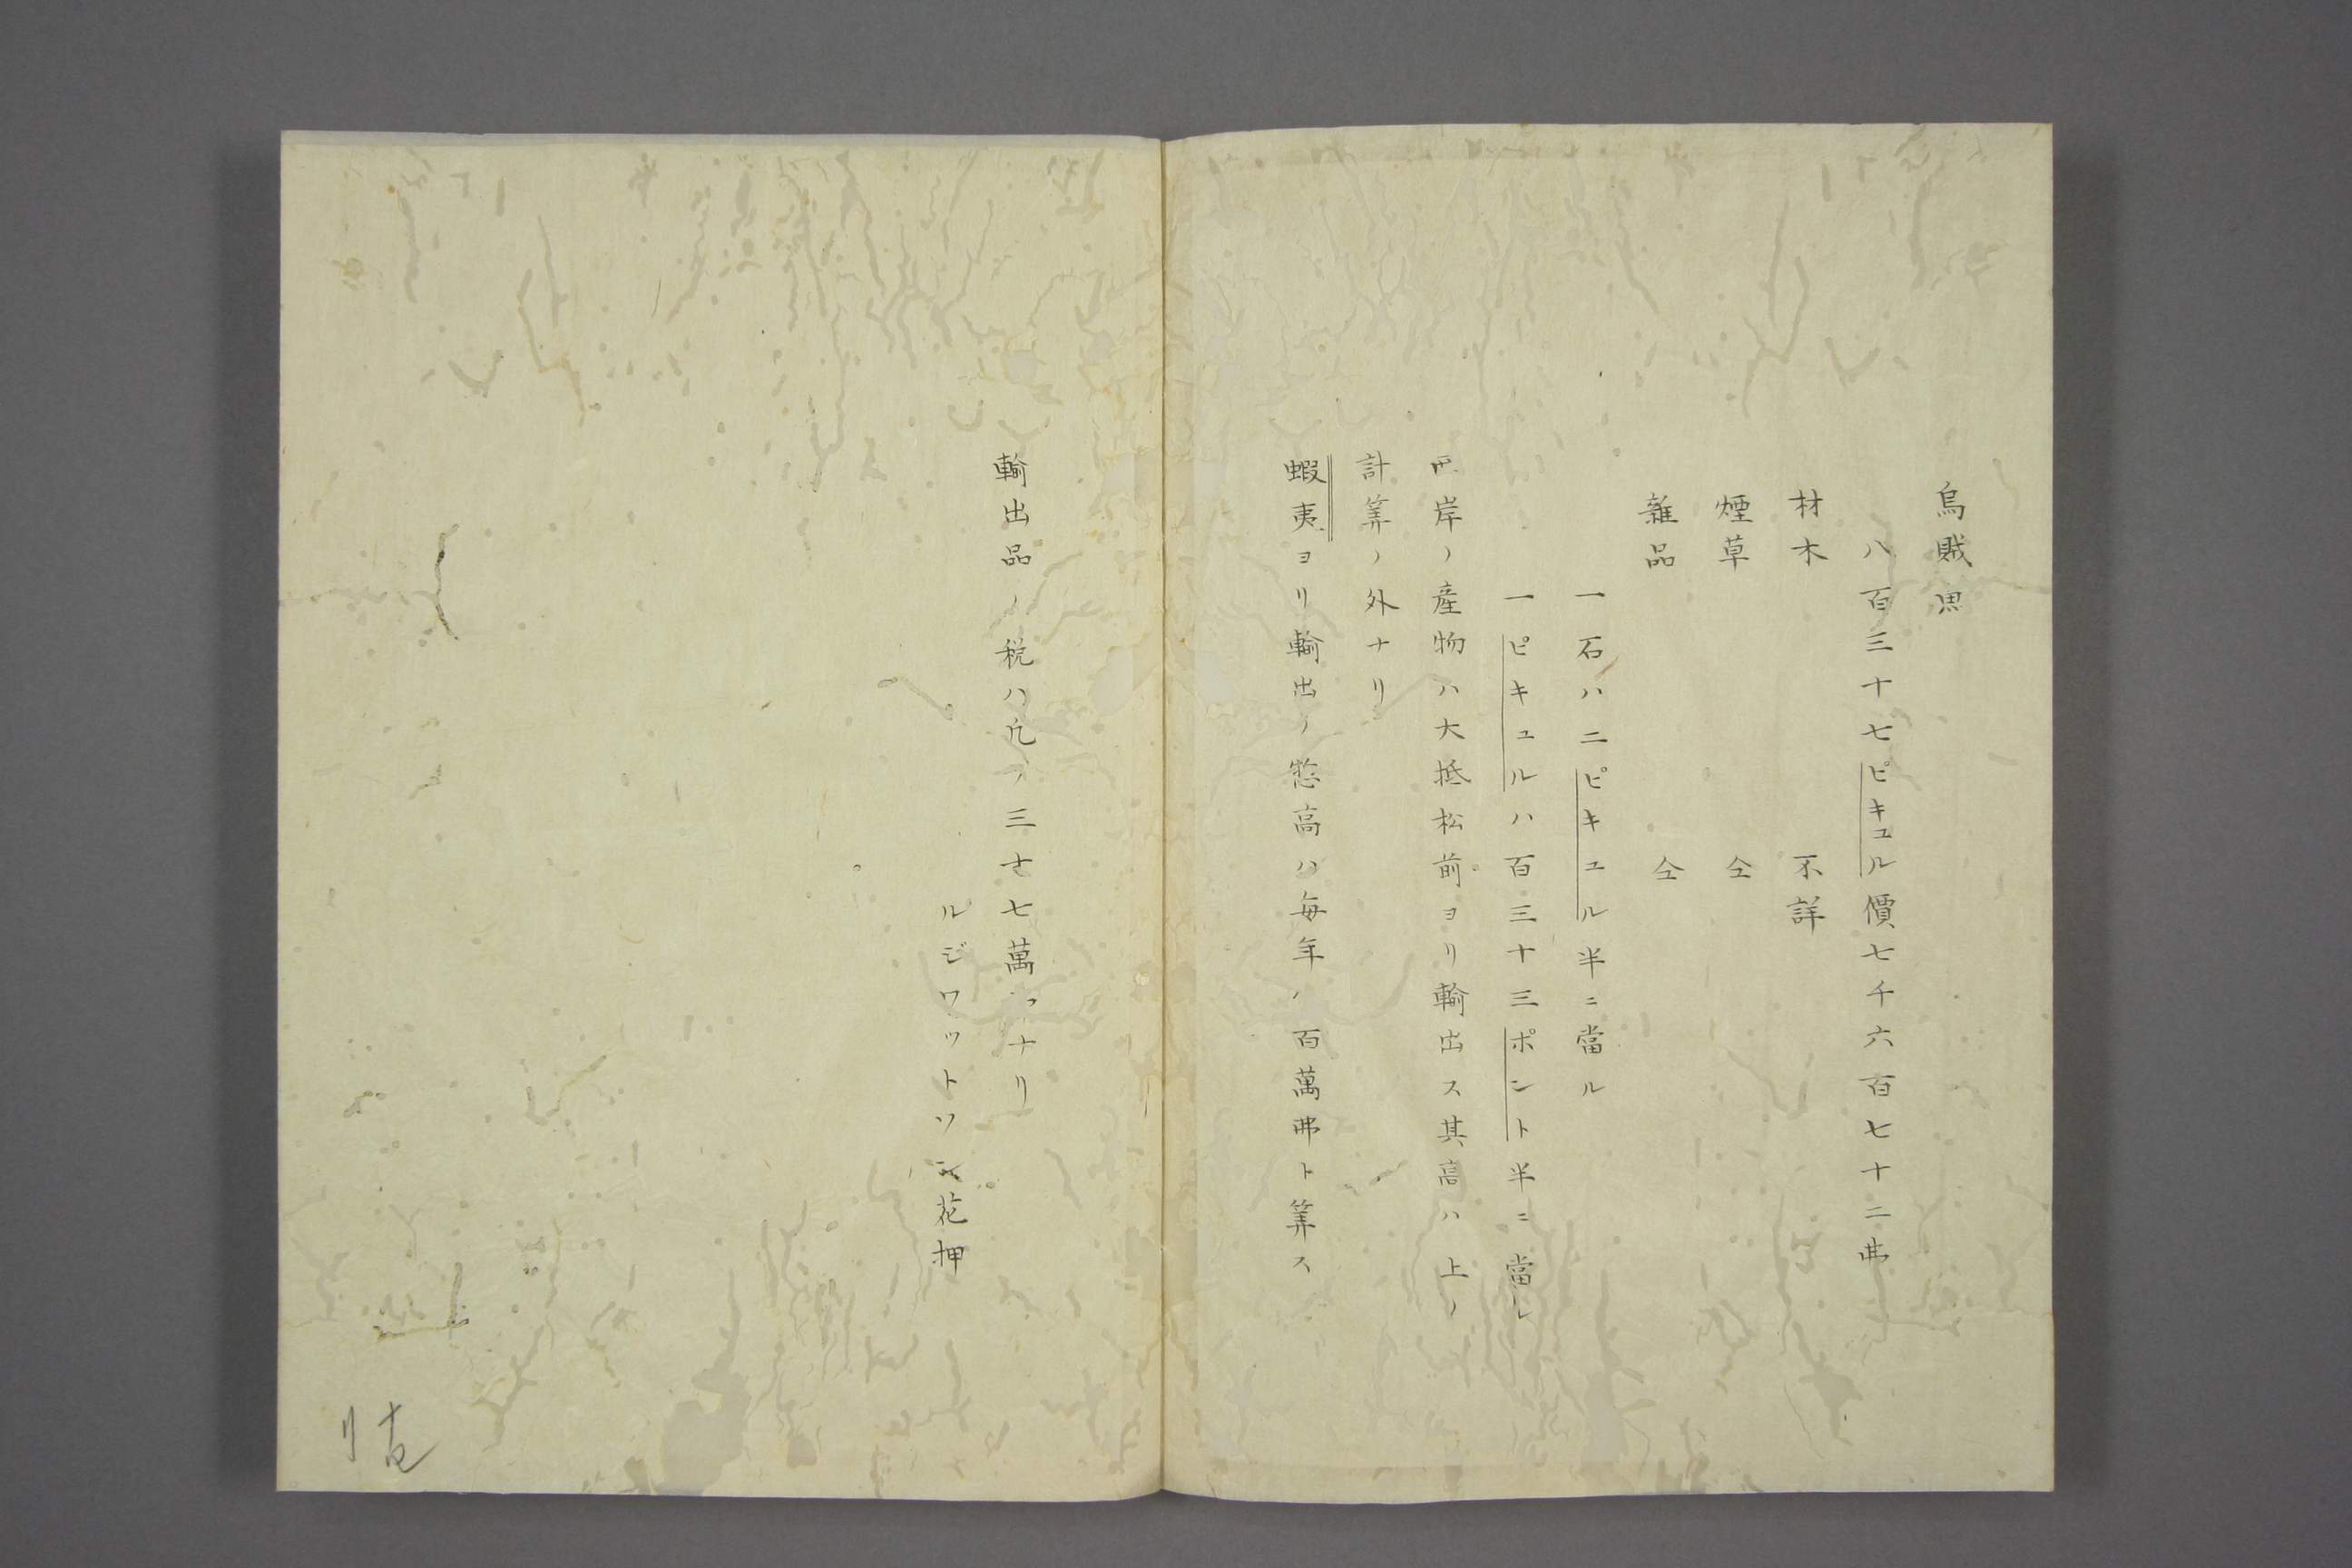 烏賊魚
八百三十七ピキユル價七千六百七十二弗
材木 不詳
煙草 仝
雑品 仝
一石ハ二ピキユル半ニ當ル
一ピキユルハ百三十三ポント半ニ當ル
西岸ノ産物ハ大抵松前ヨリ輸出ス其高ハ上ノ
計筭ノ外ナリ
蝦夷ヨリ輸出ノ惣高ハ毎年ノ百萬弗ト筭ス
輸出品ノ税ハ凡ソ三七萬ナリ
ルジワットソン花押